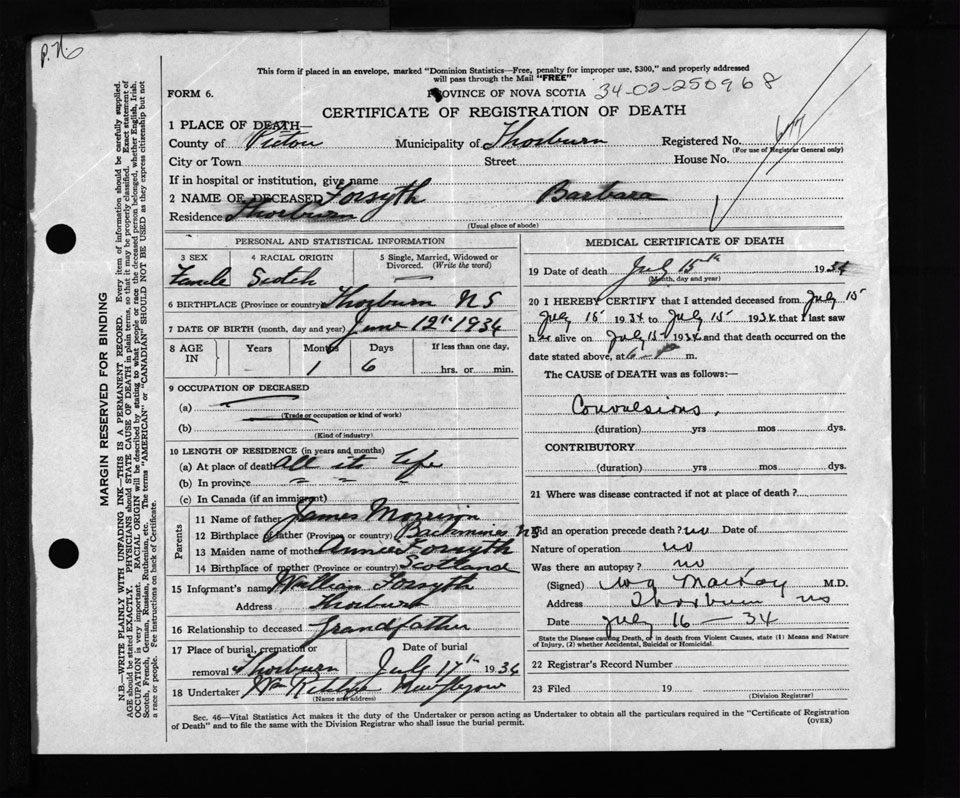 P.N.
This form if placed in an envelope, marked "Dominion Statistics—Free, penalty for improper use, $300," and properly addressed
will pass through the Mail "FREE"
FORM 6.
PROVINCE OF NOVA SCOTIA 34-02-250968
CERTIFICATE OF REGISTRATION OF DEATH
1 PLACE OF DEATH—
County of Pictou Municipality of Thorburn Registered No.
(For use of Registrar General only)
City or Town Street House No.
If in hospital or institution, give name
2 NAME OF DECEASED Forsyth Barbara
Residence Thorburn
(Usual place of abode)
PERSONAL AND STATISTICAL INFORMATION
3 SEX 4 RACIAL ORIGIN 5 Single, Married, Widowed or Divorced. (Write the word)
Female Scotch
6 BIRTHPLACE (Province or country) Thorburn NS
7 DATE OF BIRTH (month, day and year) June 12th 1934
8 AGE IN Years Months Days If less than one day,
1 6 hrs. or min.
9 OCCUPATION OF DECEASED
(a)
(Trade or occupation or kind of work)
(b)
(Kind of industry)
10 LENGTH OF RESIDENCE (in years and months)
(a) At place of death all its life
(b) In province " " "
(c) In Canada (if an immigrant)
Parents
11 Name of father James Morrison
12 Birthplace of father (Province or country) NS
13 Maiden name of mother Annie Forsyth
14 Birthplace of mother (Province or country) Scotland
15 Informant's name William Forsyth
Address Thorburn
16 Relationship to deceased Grandfather
17 Place of burial, cremation or removal Date of burial
Thorburn July 17th 1934
18 Undertaker Wm
(Name and address)
MEDICAL CERTIFICATE OF DEATH
19 Date of death July 15th 1934
(Month, day and year)
20 I HEREBY CERTIFY that I attended deceased from July 15
July 15 1934 to July 15 1934 that I last saw
her alive on July 15 1934 and that death occurred on the
date stated above, at 6 m.
The CAUSE of DEATH was as follows:—
Convulsions.
(duration) yrs mos dys.
CONTRIBUTORY
(duration) yrs mos dys.
21 Where was disease contracted if not at place of death?
Did an operation precede death? no Date of
Nature of operation no
Was there an autopsy? no
(Signed) W G MacKay M.D.
Address Thorburn NS
Date July 16 — 34
State the Disease causing Death, or in death from Violent Causes, state (1) Means and Nature
of Injury, (2) whether Accidental, Suicidal or Homicidal.
22 Registrar's Record Number
23 Filed 19
(Division Registrar)
Sec. 46—Vital Statistics Act makes it the duty of the Undertaker or person acting as Undertaker to obtain all the particulars required in the "Certificate of Registration
of Death" and to file the same with the Division Registrar who shall issue the burial permit. (OVER)
MARGIN RESERVED FOR BINDING
N.B.—WRITE PLAINLY WITH UNFADING INK—THIS IS A PERMANENT RECORD. Every item of information should be carefully supplied.
AGE should be stated EXACTLY. PHYSICIANS should STATE CAUSE OF DEATH in plain terms so that it may be properly classified. Exact statement of
OCCUPATION is very important. RACIAL ORIGIN will be described by stating to what people or race the deceased person belonged, whether English, Irish,
Scotch, French, German, Russian, Ruthenian, etc. The terms "AMERICAN" or "CANADIAN" SHOULD NOT BE USED as they express citizenship but not
a race or people. Fee instructions on back of Certificate.